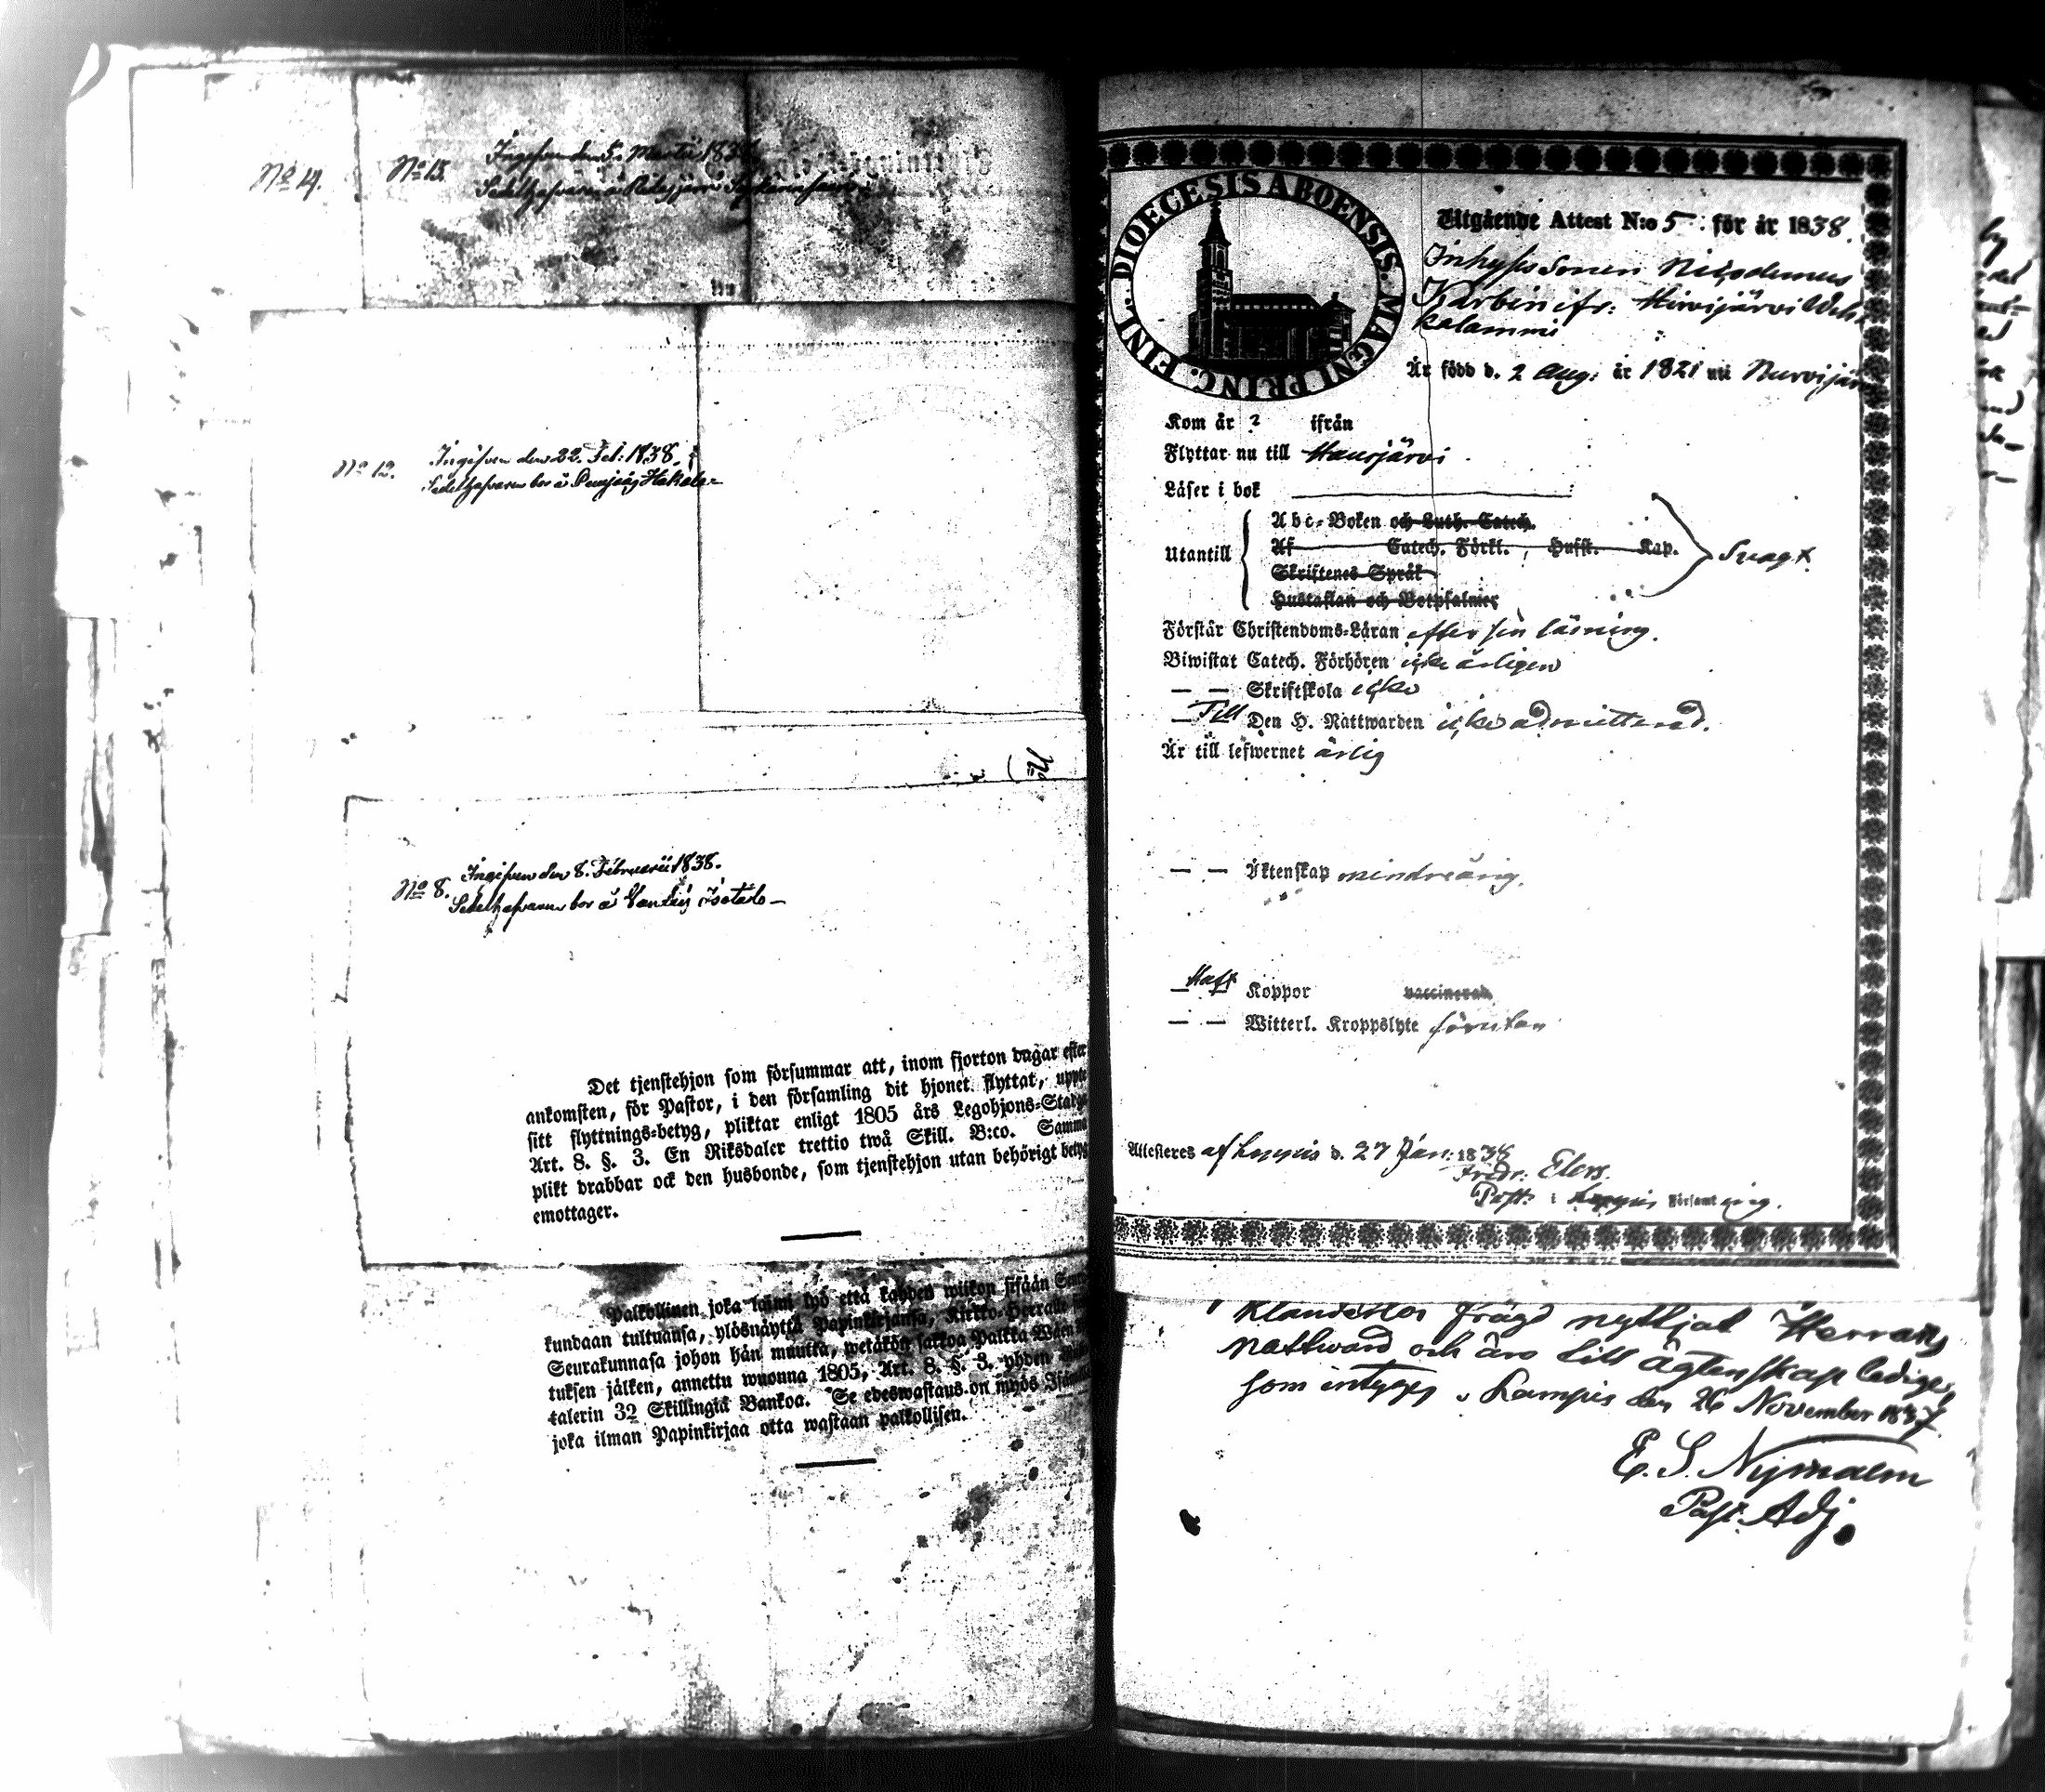 No 14.
No 13.
Ingifven den 5. Martii 183
Sedelhafvaren
No 12.
Ingifven den 22. Feb: 1838.
Sedelhafvaren bor å Hakala
No
No 8.
Ingifven den 8. Februarii 1838.
Sedelhafvaren bor å Isotalo
Det tjenstehjon som försummar att, inom fjorton dagar efter
ankomsten, för Pastor, i den församling dit hjonet flyttat, uppte
sitt flyttnings-betyg, pliktar enligt 1805 års Legohjons-Stadga
Art. 8. §. 3. En Riksdaler trettio twå Skill. B:co. Samma
plikt drabbar ock den husbonde, som tjenstehjon utan behörigt betyg
emottager.
Palkollinen joka laimi lyö että kahden wiikon sisään Seura
kundaan tultuansa, ylösnäyttä Papinkirjansa, Kirkko-Herralle
Seurakunnasa johon hän muutta, wetäkön sakkoa Palkka
tuksen jälken, annettu wuonna 1805, Art. 8. §. 3. yhden
talerin 32 Skillingiä Bankoa. Se edeswastaus on myös
joka ilman Papinkirjaa otta wastaan palkollisen.
DIOECESIS ABOENSIS. MAGNI PRINC. FINL.
Utgående Attest N:o 5. för år 1838.
Inhyses Sonen Nicodemus
Karbin ifr: Hirvijärvi
kalammi
Är född d. 2 Aug: år 1821 uti Nurvijär
Kom år ? ifrån
Flyttar nu till Hausjärvi.
Läser i bok
Utantill
Abc-Boken och Luth. Catech.
Af Catech. Förkl., Hufst. Kap.
Skriftenes Språk
Hustaflan och Botpsalmer
Svagt.
Förstår Christendoms-Läran efter sin läsning.
Biwistat Catech. Förhören icke årligen
— — Skriftskola icke
— Till Den H. Nattwarden icke admitterad.
Är till lefwernet ärlig
— — Äktenskap minderårig.
— Haft Koppor vaccinerad
— — Witterl. Kroppslyte förutan
Attesteres af Loppis d. 27 Jan: 1838
Fredr: Elers.
Past: i Loppis Församling.
klanderlös frägd nyttjat Herrans
nattvard och äro till ägtenskap ledige,
som intygas. Kampis den 26 November 1837.
E. S. Nymalm
Past. Adj.